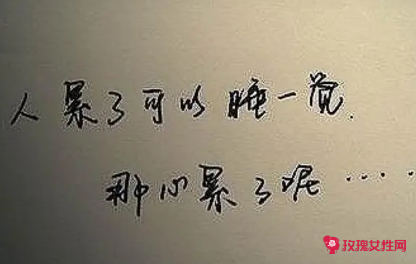 人累了可以睡一觉.
那心累了呢……
玫瑰女性网